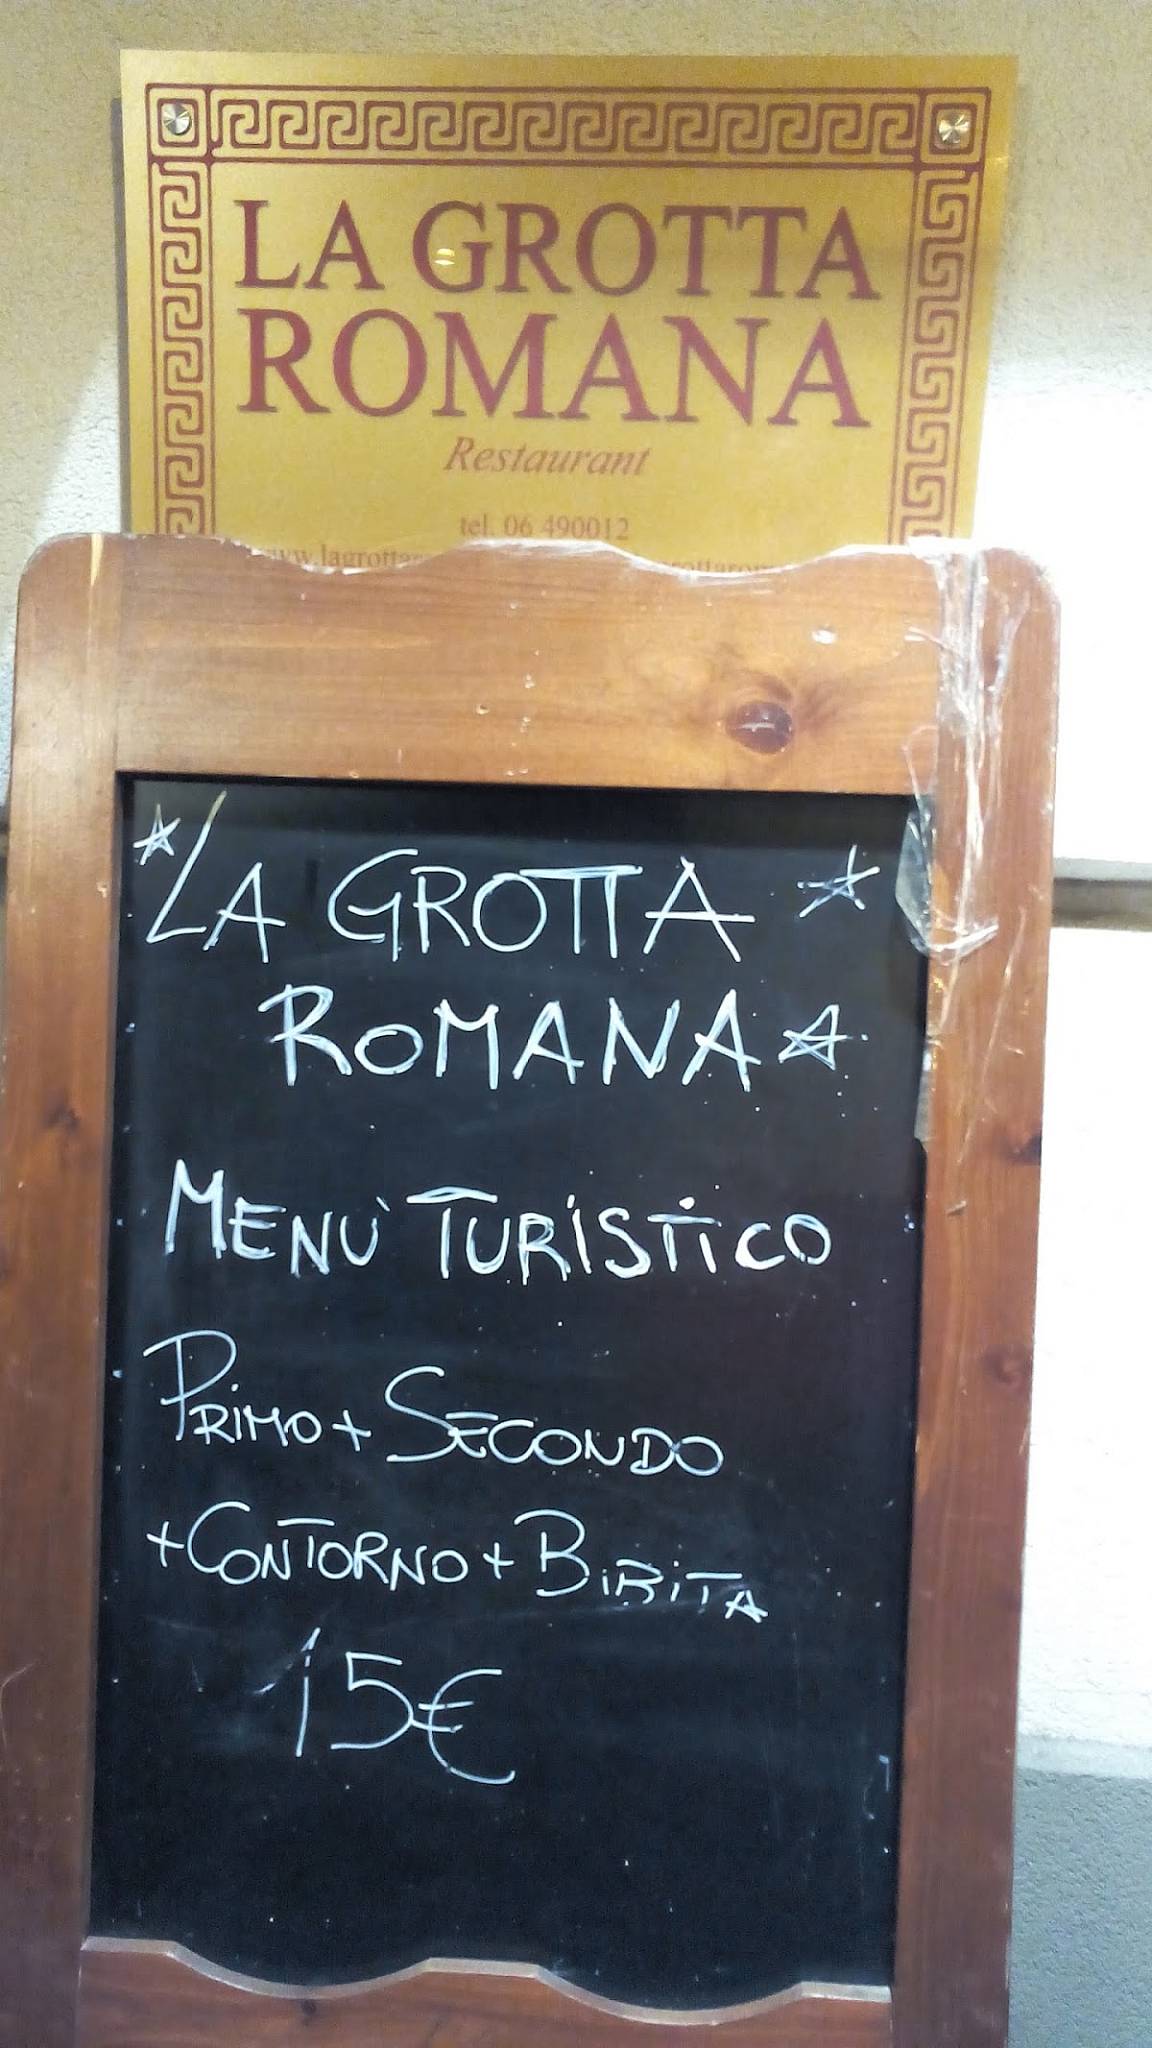 LA GROTTA
ROMANA
Restaurant
tel. 06 490012
LA GROTTA
ROMANA
MENÙ TURISTICO
PRIMO + SECONDO
+ CONTORNO + BIBITA
15€